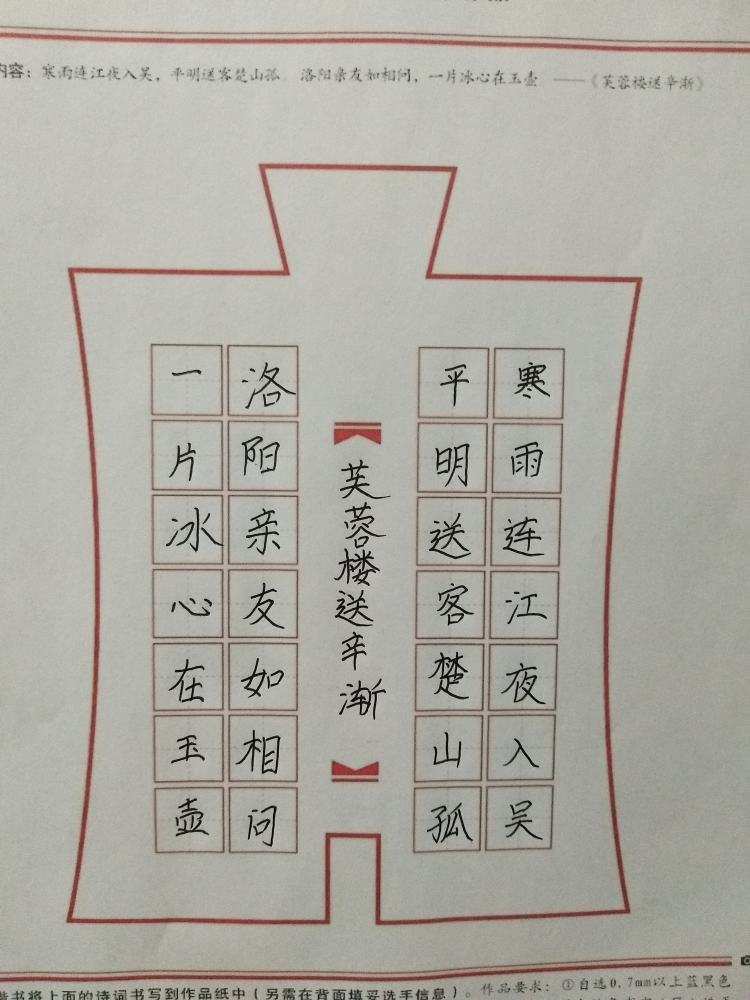 内容：寒雨连江夜入吴，平明送客楚山孤 洛阳亲友如相问，一片冰心在玉壶 ——《芙蓉楼送辛渐》
寒雨连江夜入吴
平明送客楚山孤
芙蓉楼送辛渐
洛阳亲友如相问
一片冰心在玉壶
楷书将上面的诗词书写到作品纸中（另需在背面填妥选手信息）。作品要求：①自选0.7mm以上蓝黑色